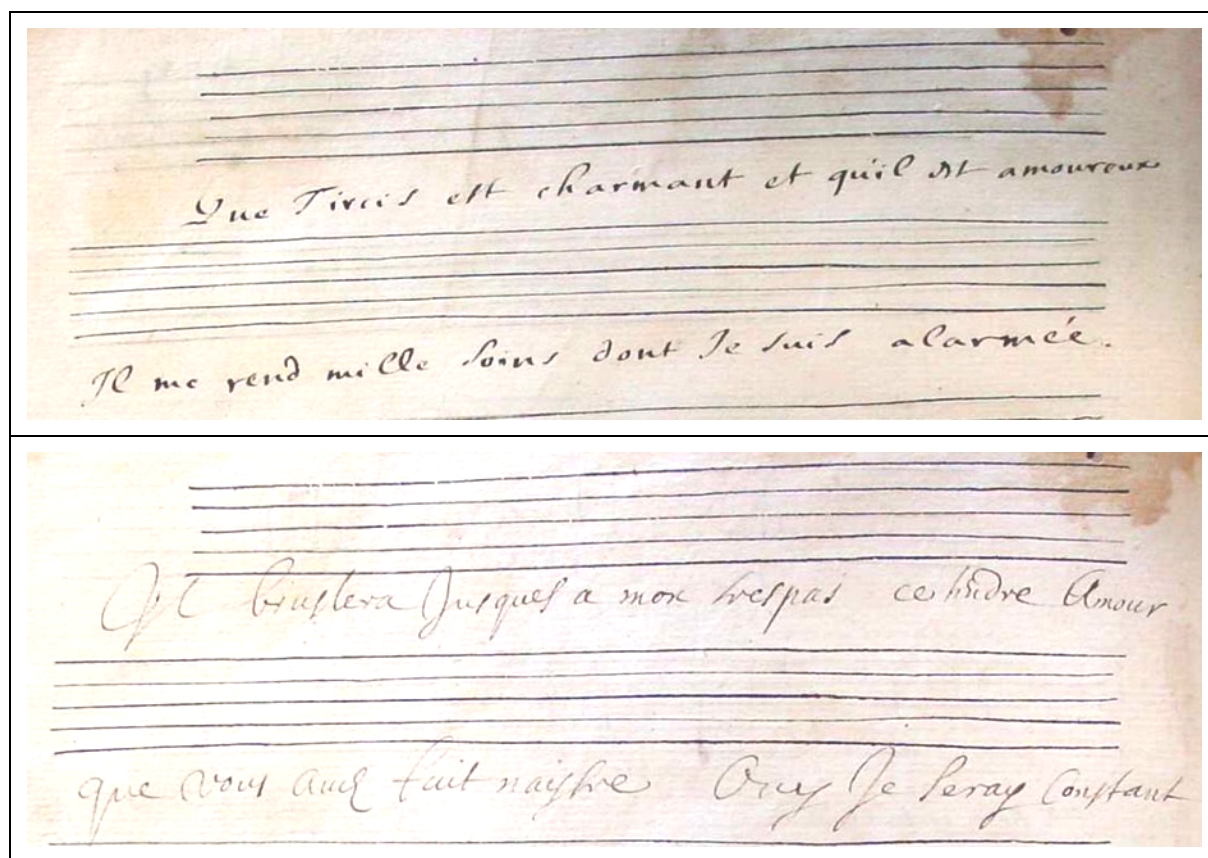 Que Tircis est charmant et quil est amoureux
Il me rend mille soins dont Je suis alarmée.
Il bruslera Jusques a mon trespas ce tendre Amour
que vous avez fait naistre Ouy Je seray Constant